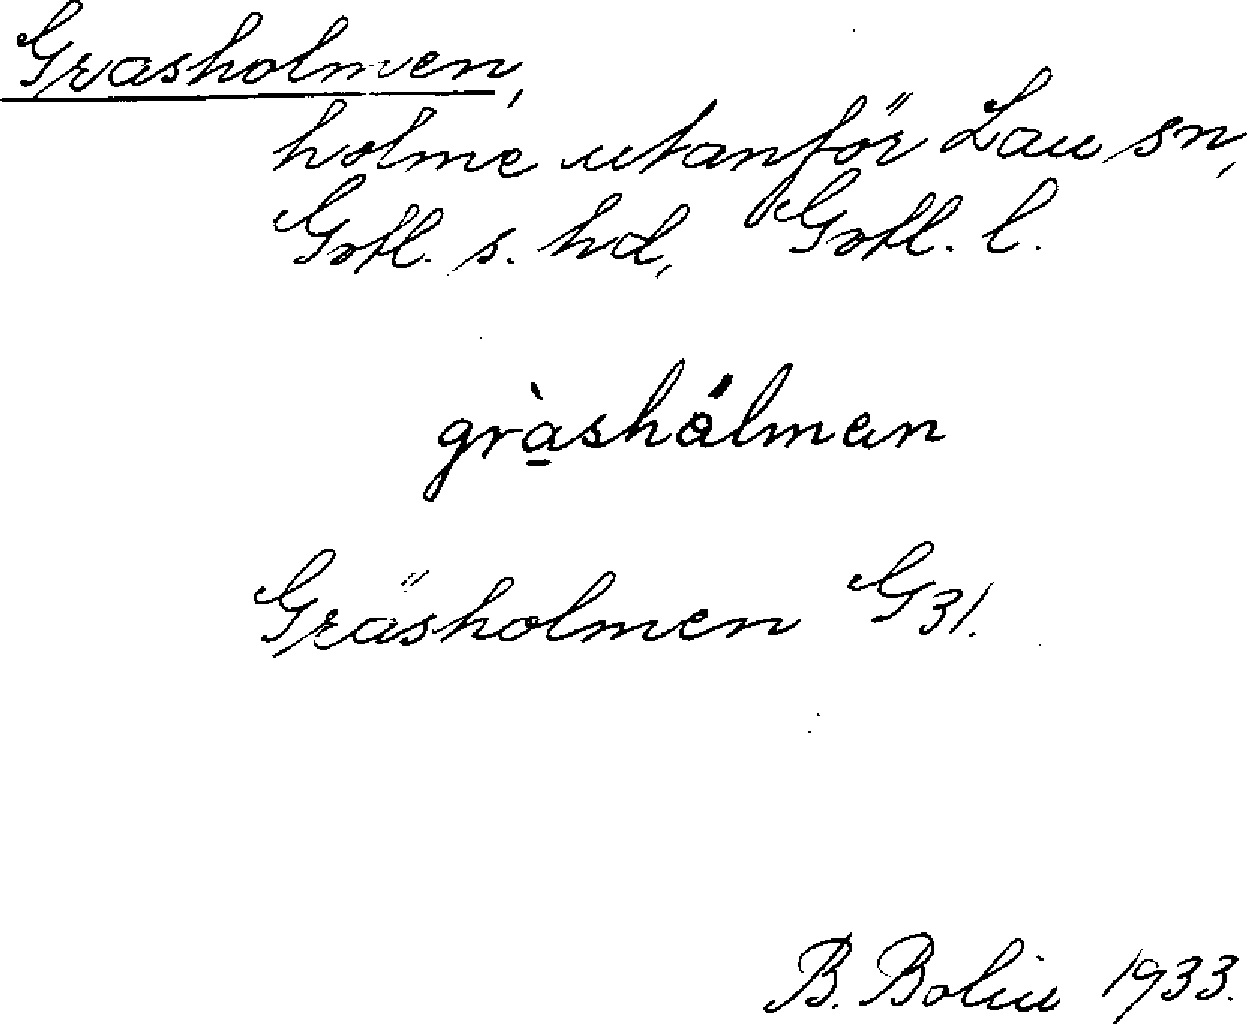 Grasholmen,
holme utanför Lau sn,
Gotl. s. hd, Gotl. l.
gràshålmen
Gräsholmen G31.
B. Bolin 1933.